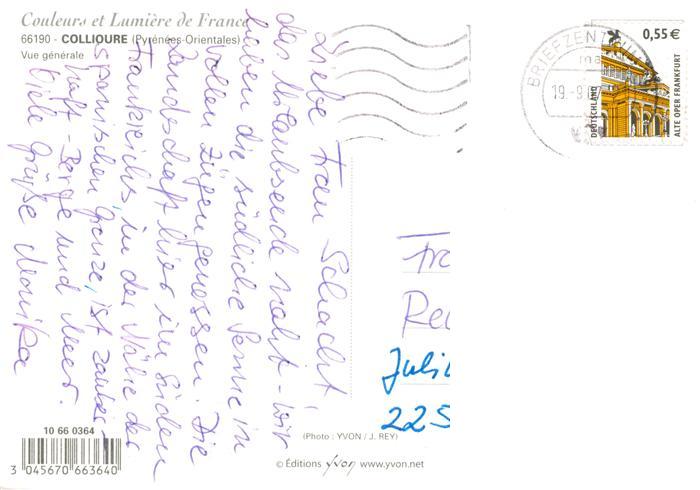 Couleurs et Lumière de France
66190 - COLLIOURE (Pyrénées-Orientales)
Vue générale
Liebe Frau Schacht,
das Urlaubsende naht - wir
haben die südliche Sonne in
vollen Zügen genossen. Die
Landschaft hier im Süden
Frankreichs, in der Nähe der
spanischen Grenze, ist zauber-
haft - Berge und Meer.
Viele Grüße Monika
BRIEFZENTRUM
19.-9.
0,55€
DEUTSCHLAND
ALTE OPER FRANKFURT
Fra
Rei
Juli
225
10 66 0364
3 045670 663640
(Photo : YVON / J. REY)
© Éditions yvon www.yvon.net